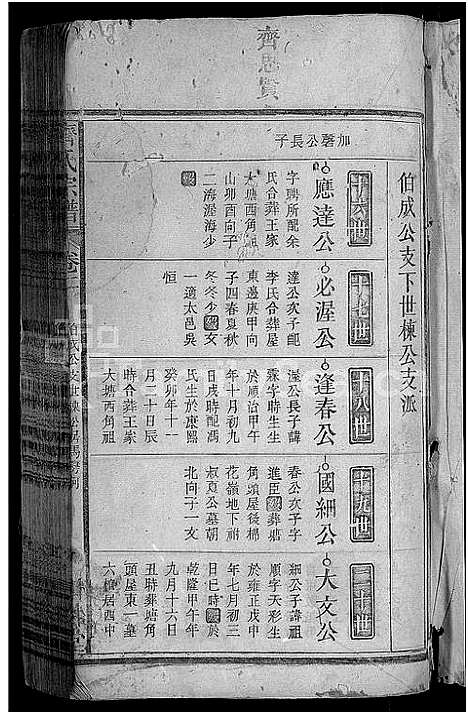 齊思賢
伯成公支下世棟公支派
加馨公長子
十六世
應達公
字聘所配余
氏合葬王家
大塘西角
山卯酉向子
二海渥海少
十七世
必渥公
達公次子
李氏合葬屋
東邊庚甲向
子四春夏秋
冬冬少 女
一適太邑吳
恒
十八世
逢春公
渥公長子諱
霖字時生生
於順治甲午
年十月初九
日戌時配馮
氏生於康熙
癸卯年十一
月二十日辰
時合葬王家
大塘西角祖
十九世
國細公
春公次子字
進臣 葬
角頭屋後棉
花嶺地下祔
叔夏公墓朝
北向子一文
二十世
大文公
細公子諱祖
順字天彩生
於雍正戊申
年七月初三
日巳時 於
乾隆甲午年
九月十六日
丑時葬大塘角
頭屋東一墓
六 居酉中
氏宗譜
卷二
伯成公支世棟公